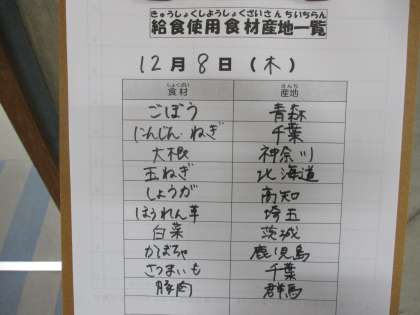 きゅうしょくしようしょくざいさんちいちらん
給食使用食材産地一覧
12月8日(木)
しょくざい さんち
食材 産地
ごぼう 青森
にんじん・ねぎ 千葉
大根 神奈川
玉ねぎ 北海道
しょうが 高知
ほうれん草 埼玉
白菜 茨城
かぼちゃ 鹿児島
さつまいも 千葉
豚肉 群馬